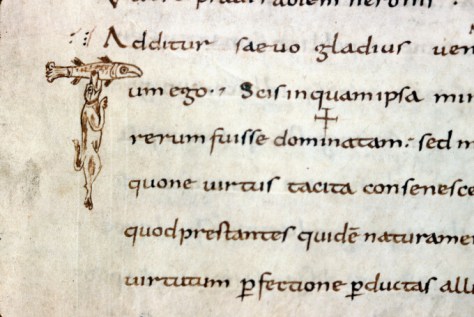 prauirabiem neroni .
Additur saeuo gladius uen
Tum ego . Scis inquam ipsa min
rerum fuisse dominatam : sed m
quone uirtus tacita consenesce
quod prestantes quidē naturamen
uirtutum ꝑfectione ꝑductas all